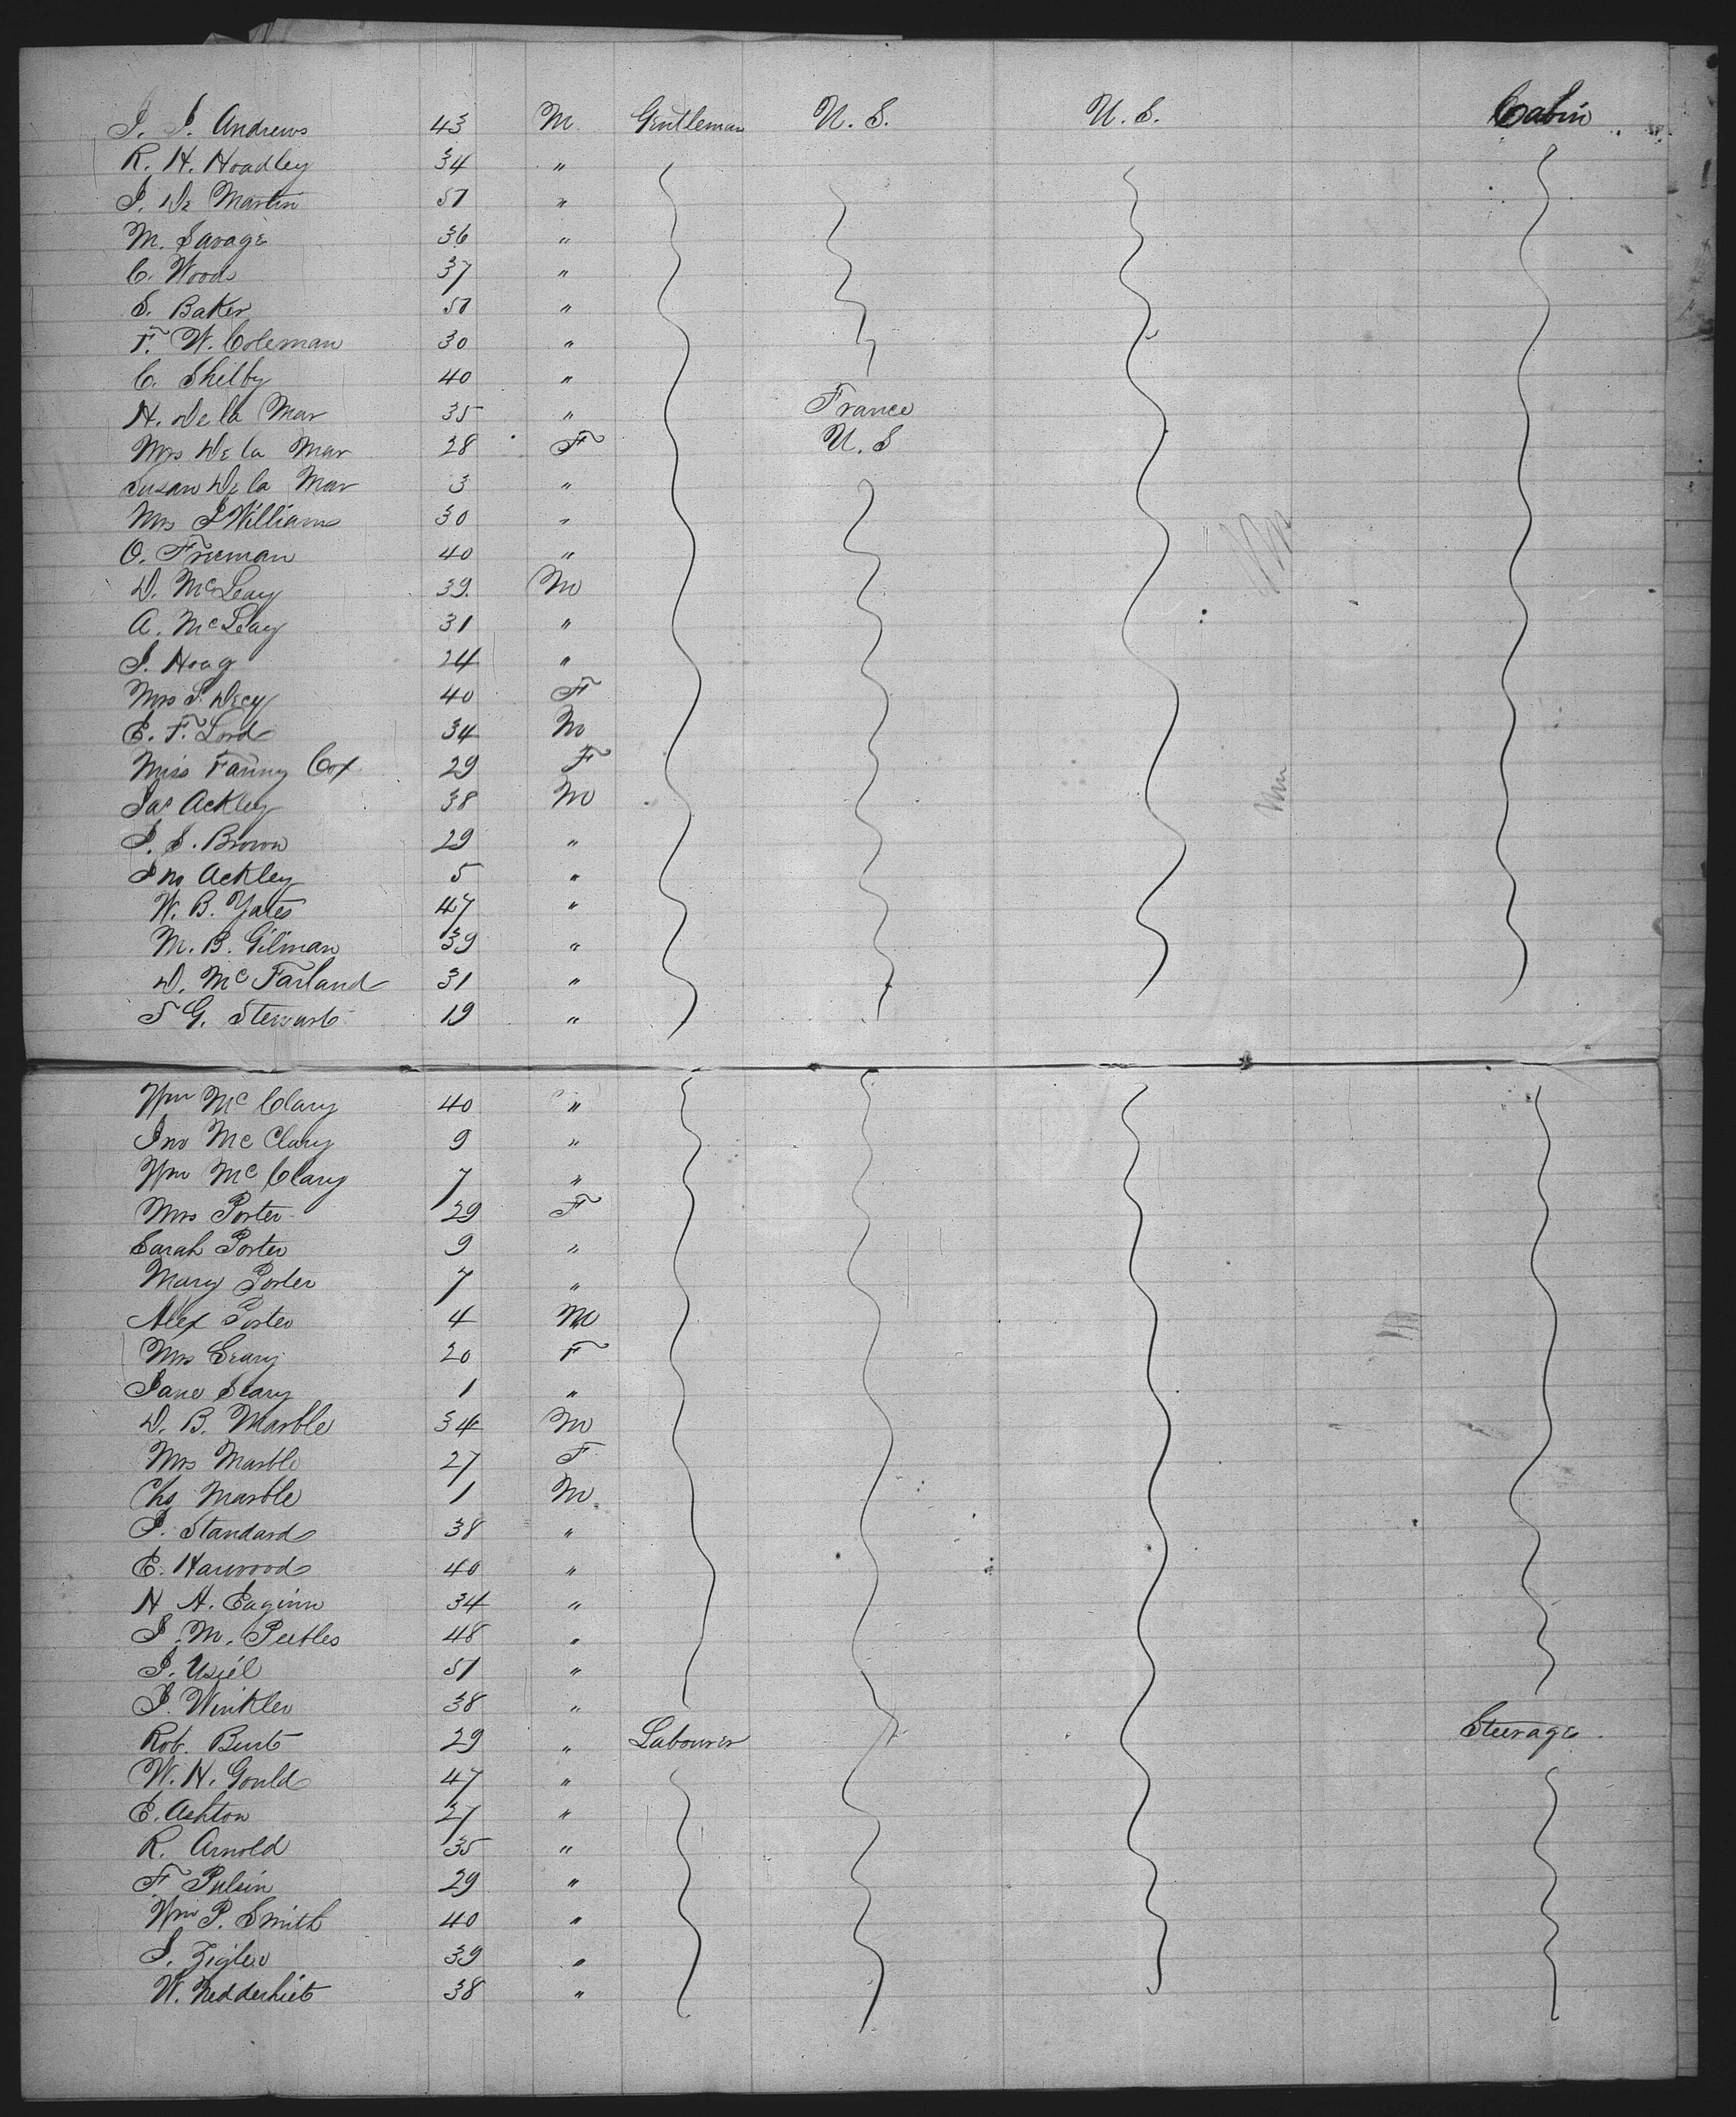 J. J. Andrews 43 M Gentleman U. S. U. S. Cabin
R. H. Hoadley 34 "
J. De Martin 51 "
M. Savage 36 "
C. Wood 37 "
S. Baker 51 "
F. W. Coleman 30 "
C. Shilby 40 "
H. De la Mar 35 " France
Mrs De la Mar 28 F U. S
Susan De la Mar 3 "
Mrs J Williams 30 "
O. Freeman 40 "
D. McLeay 39. M
A. McLeay 31 "
J. Hoag 24 "
Mrs S. Decy 40 F
E. F. Lord 34 M
Miss Fanny Cox 29 F
Jas Ackley 38 M
J. S. Brown 29 "
Jno Ackley 5 "
W. B. Yates 47 "
M. B. Gilman 39 "
D. Mc Farland 31 "
S G. Stewart 19 "
Wm Mc Clary 40 "
Jno Mc Clary 9 "
Wm Mc Clary 7 "
Mrs Porter 29 F
Sarah Porter 9 "
Mary Porter 7 "
Alex Porter 4 M
Mrs Seary 20 F
Jane Seary 1 "
D. B. Marble 34 M
Mrs Marble 27 F
Chs Marble 1 M
J. Standard 38 "
E. Harwood 40 "
H H. Eaginn 34 "
J. M. Peebles 48 "
J. Usiel 51 "
J. Winkler 38 "
Rob. Burt 29 " Labourer Steerage
W. H. Gould 47 "
E. Ashton 27 "
R. Arnold 35 "
F Pulsin 29 "
Wm P. Smith 40 "
J. Zigler 39 "
W. Nedderhiet 38 "